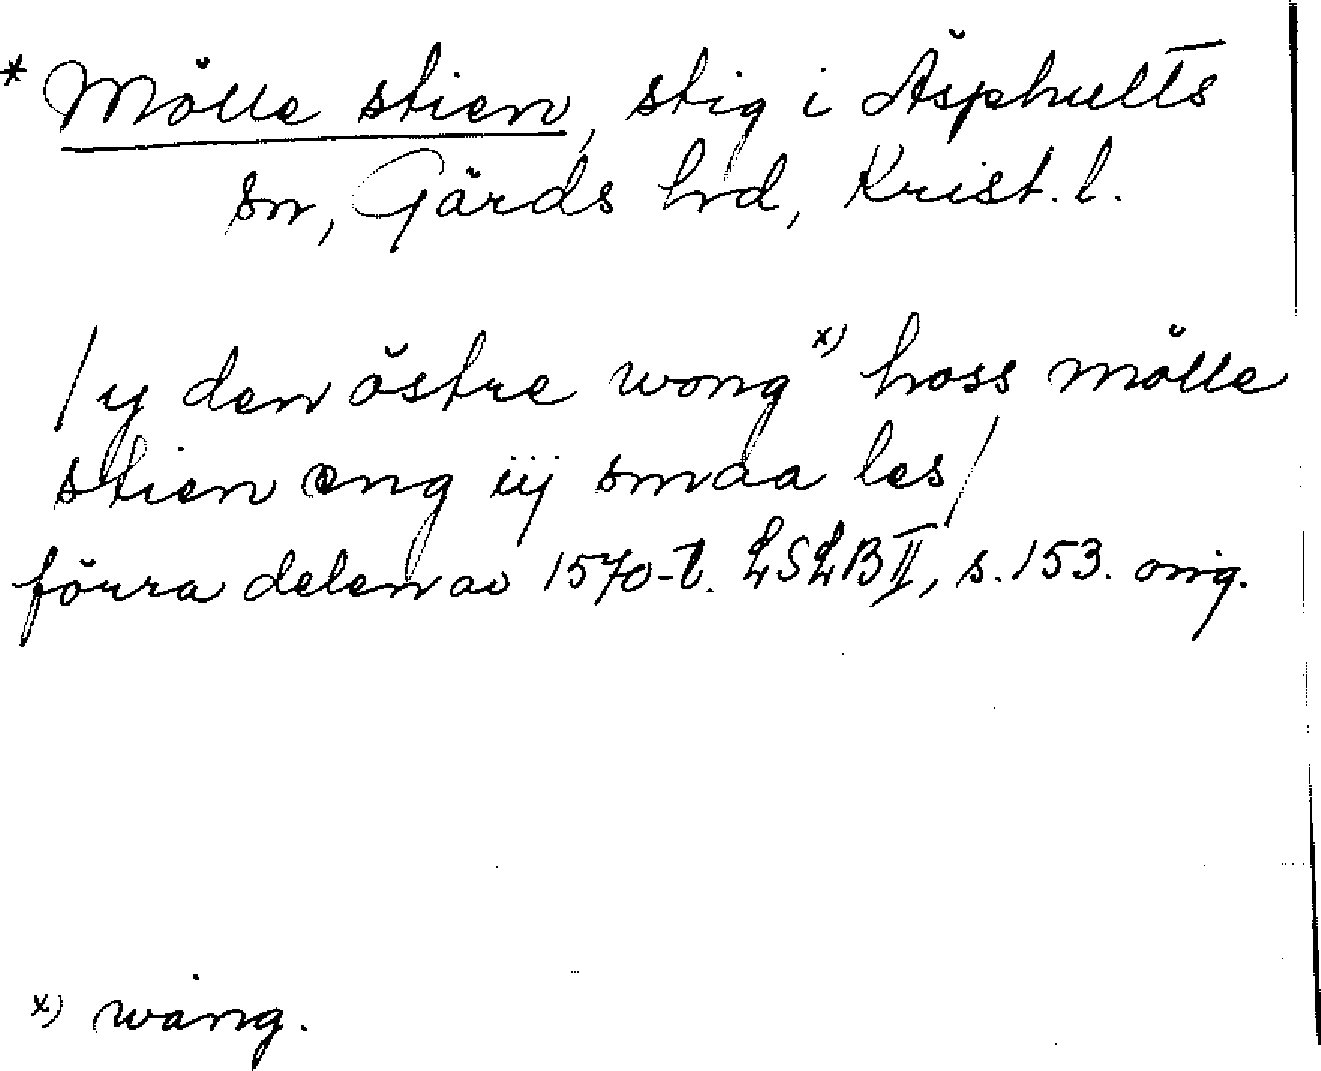 * Mölle stien, stig i Äsphults
sn, Gärds hrd, Krist. l.
/ y den östre wong x) hoss mölle
stien eng iij smaa les /
förra delen av 1570-t. LSLB II, s. 153. orig.
x) wång.